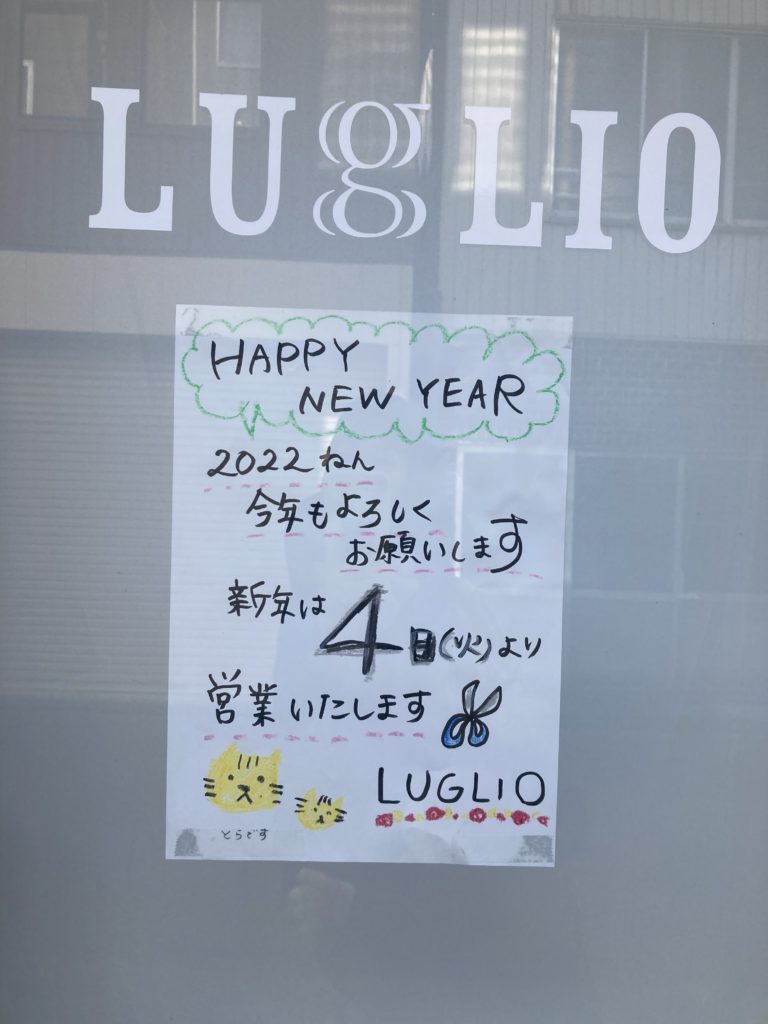 LUgLIO
HAPPY
NEW YEAR
2022ねん
今年もよろしく
お願いします
新年は4日(火)より
営業いたします
LUGLIO
とらです